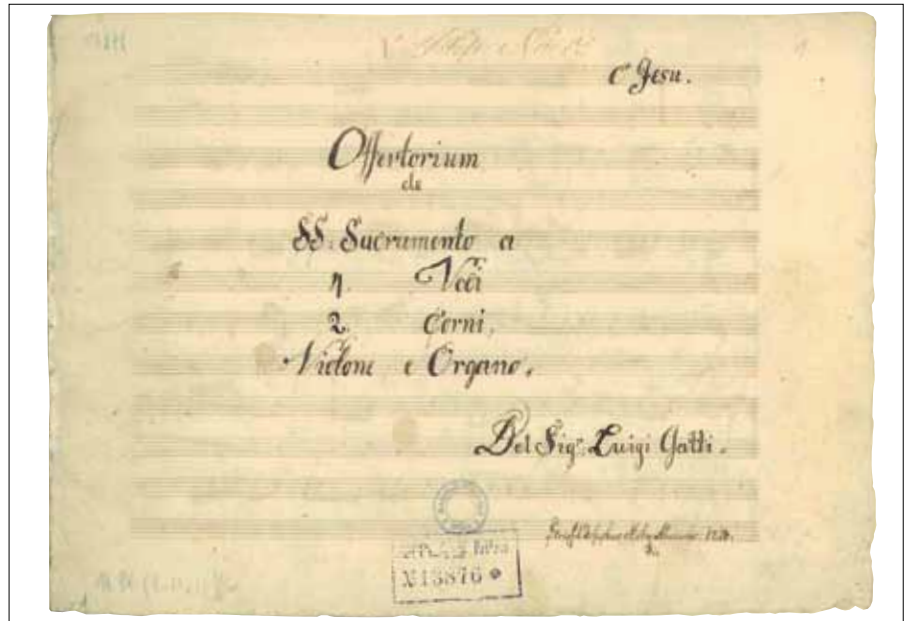 O Jesu.
Offertorium
de
SS: Sacramento a
4. Voci
2. Corni.
Violone e Organo.
Del Sigr. Luigi Gatti.
N 13876